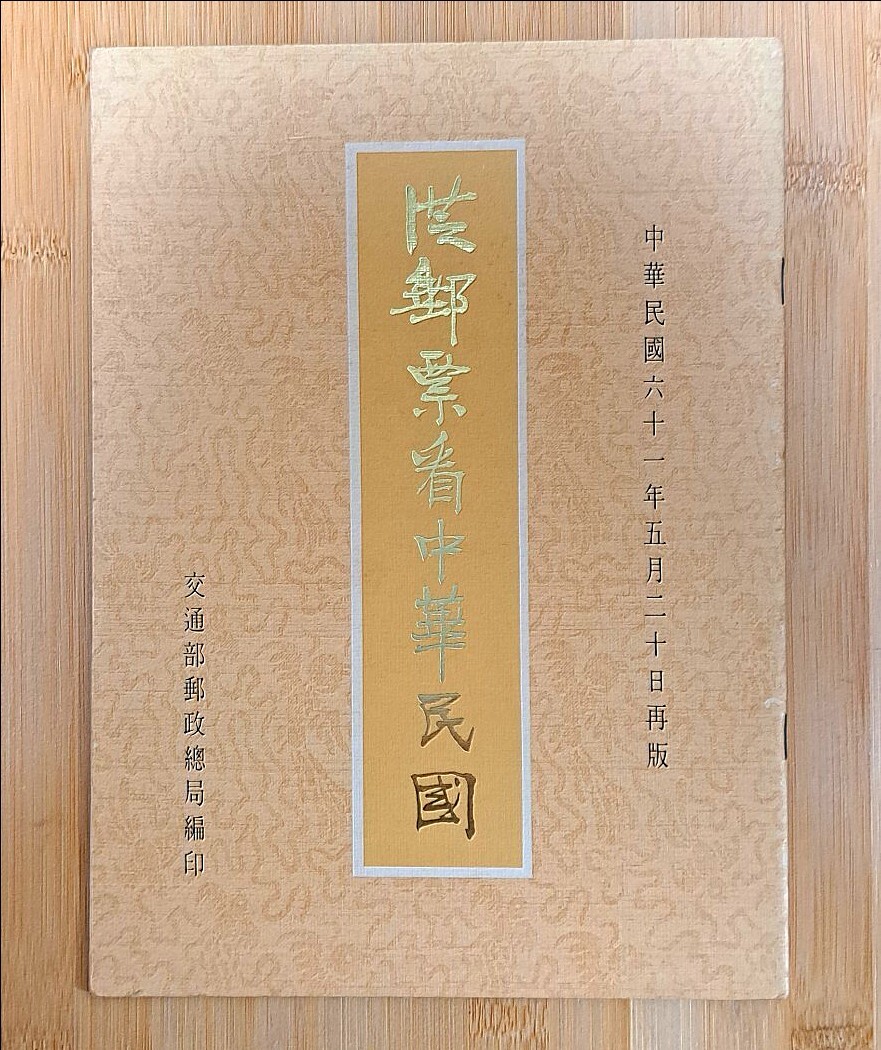 中華民國六十一年五月二十日再版
從郵票看中華民國
交通部郵政總局編印